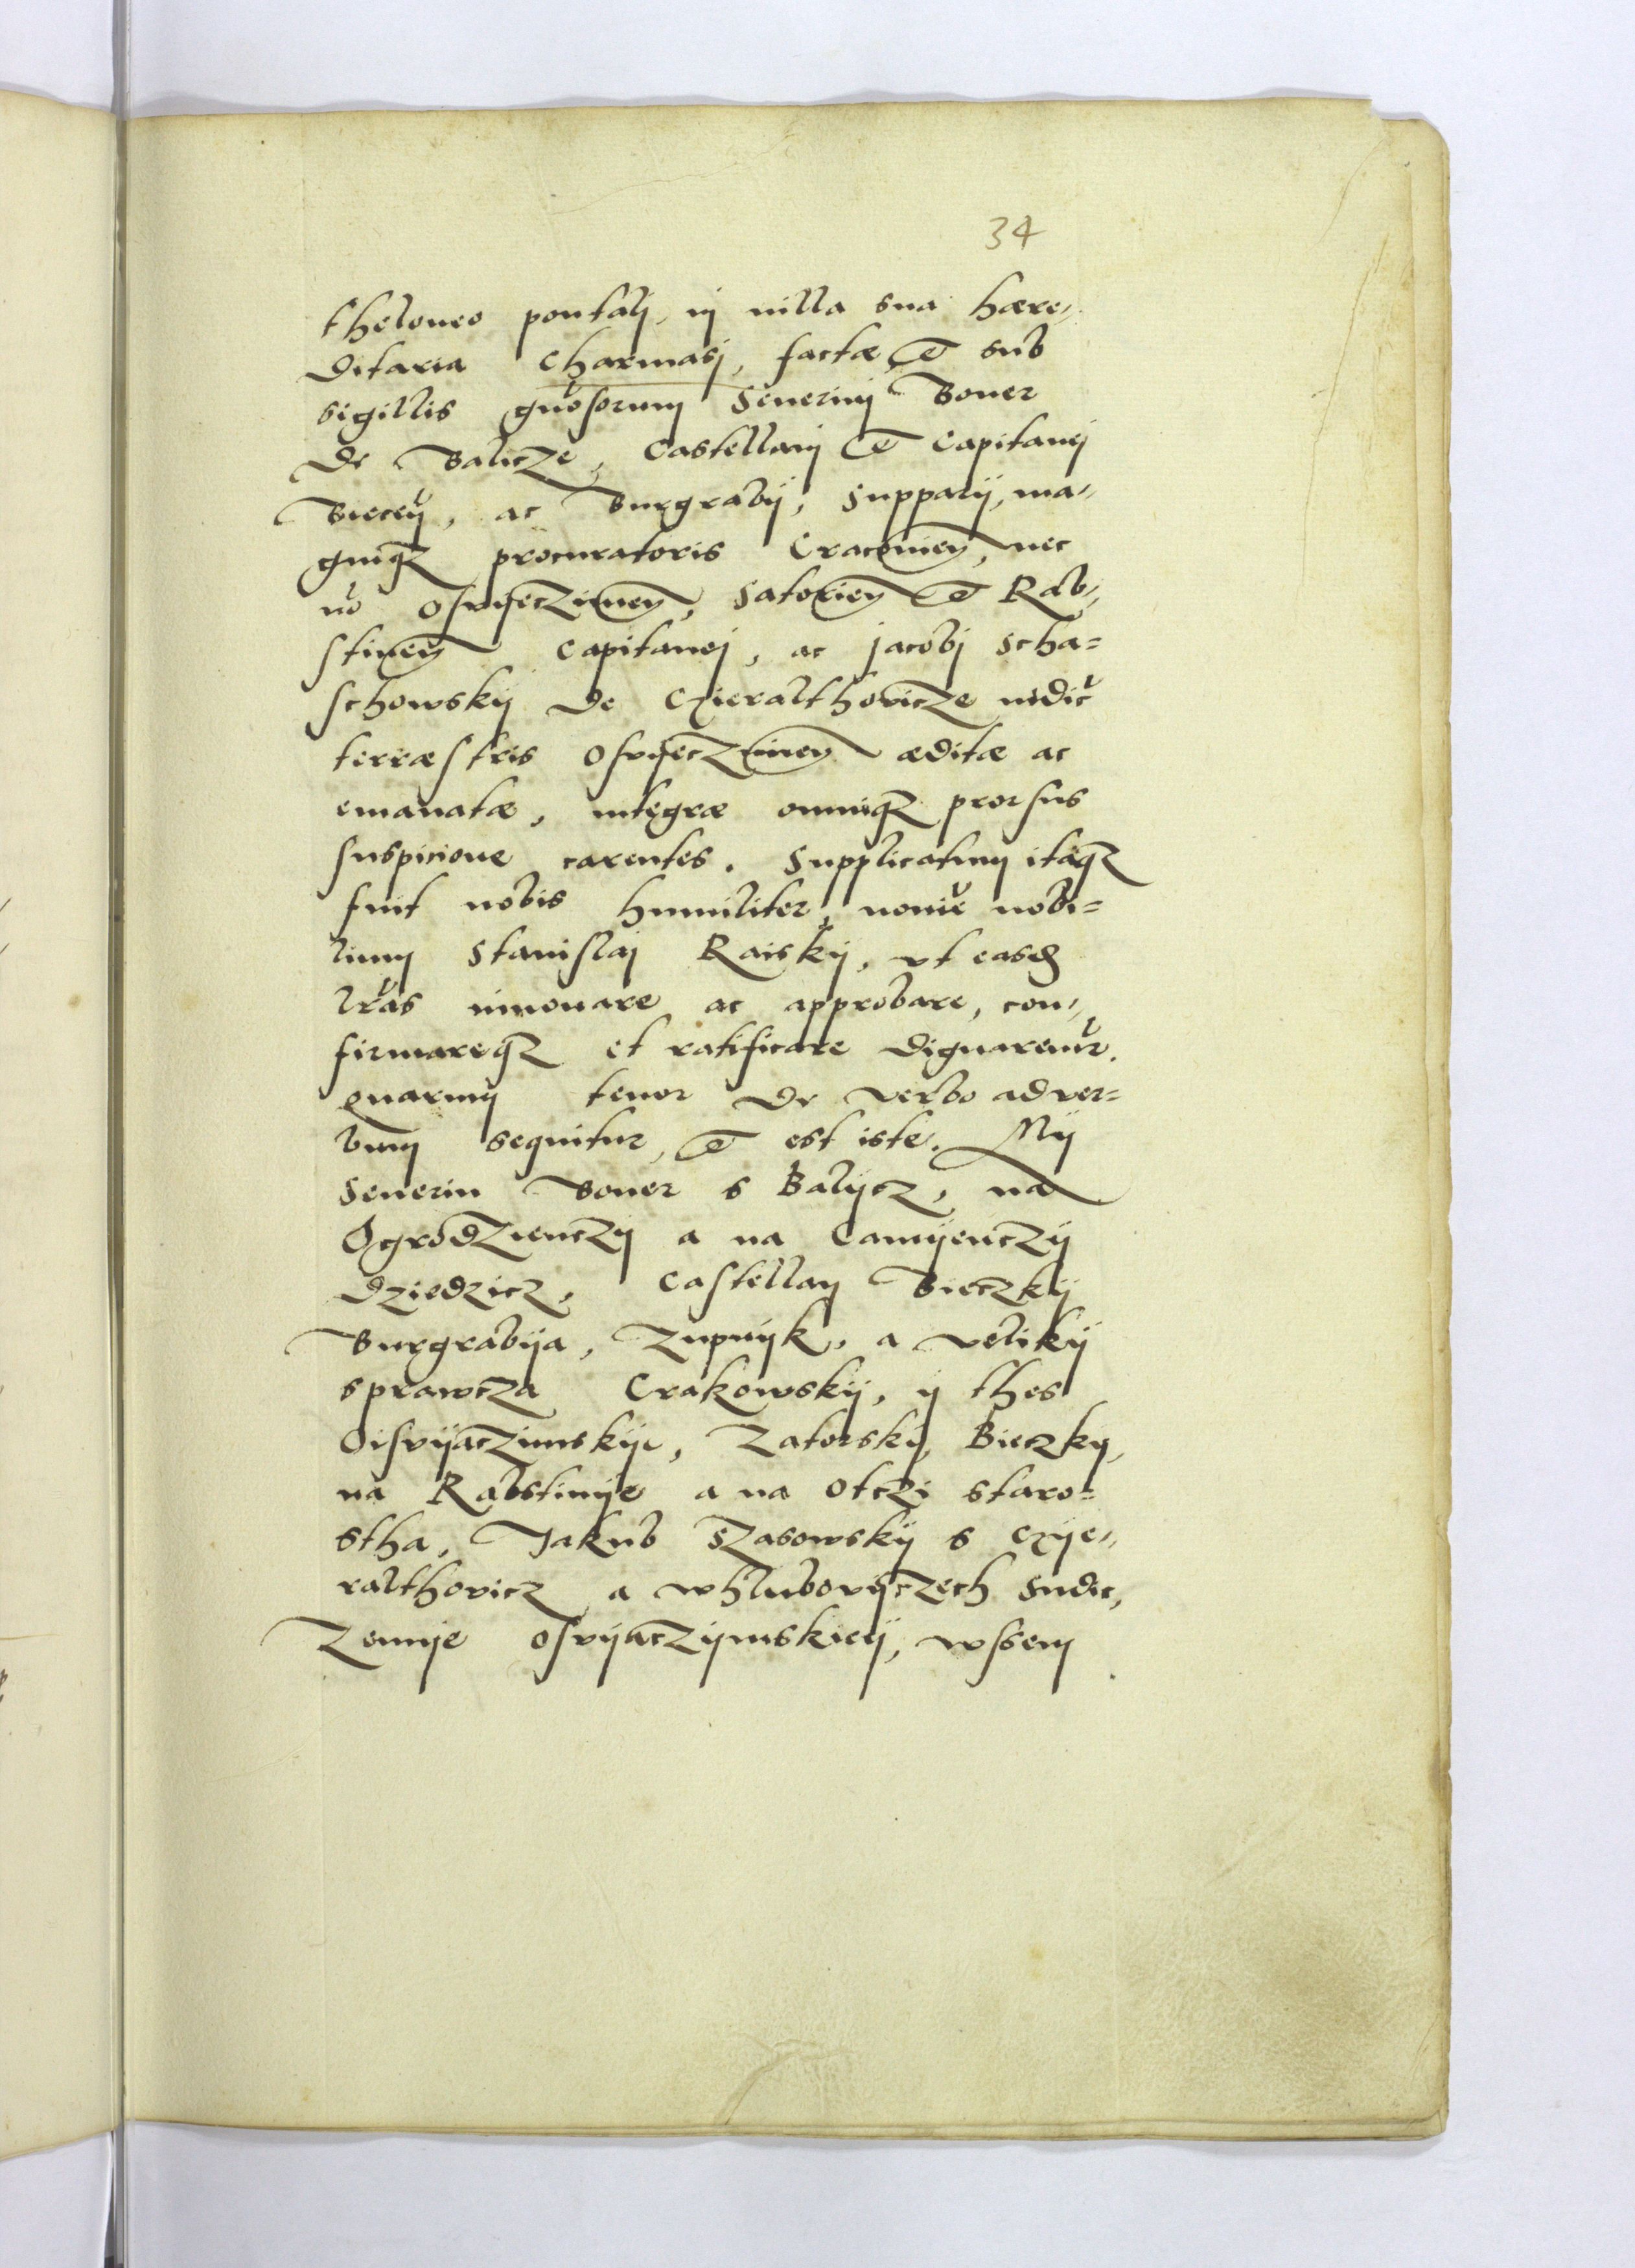 34
theloneo pontalj, in uilla sua hære-
ditaria Charmasj, factæ, et sub
sigillis gnosorum Seuerinj Boner
de Balicze, Castellanj et Capitanej
Biecen, ac Burgrabij, Supparij, ma-
gniqz procuratoris Cracouien, nec
no Osvijeczimen, Satorien et Rab-
stinen Capitanej, ac Jacobj Scha=
schowskij de Gieralthovicze iudic
terræstris Osvijecziminen æditæ ac
emanatæ, integræ omniqz prorsus
suspicione carentes. Supplicatum itaqz
fuit nobis humiliter, nomie nobi=
lium Stanislaj Raiskij, vt easd
lras innouare ac approbare, con-
firmareqz et ratificare dignaremur.
quarum tenor de verbo ad ver=
bum sequitur, et est iste. Mÿ
Seuerin Boner s Balÿcz, na
Ogrodzienczÿ a na Camÿenczÿ
dziedzicz, Castellan Bieczkÿ
Burgrabÿa, Zupnÿk, a velikÿ
sprawcza Crakowskÿ, ÿ thes
Oisvijaczimskÿ, Zatorskÿ, Bieczkÿ,
na Rabstinÿe a na Otczi staro=
stha, Jakub Szasowskÿ s Gÿe-
ralthovicz a w hlubovÿczech Sudic,
Zemÿe Osvÿaczÿmskieÿ, wssem